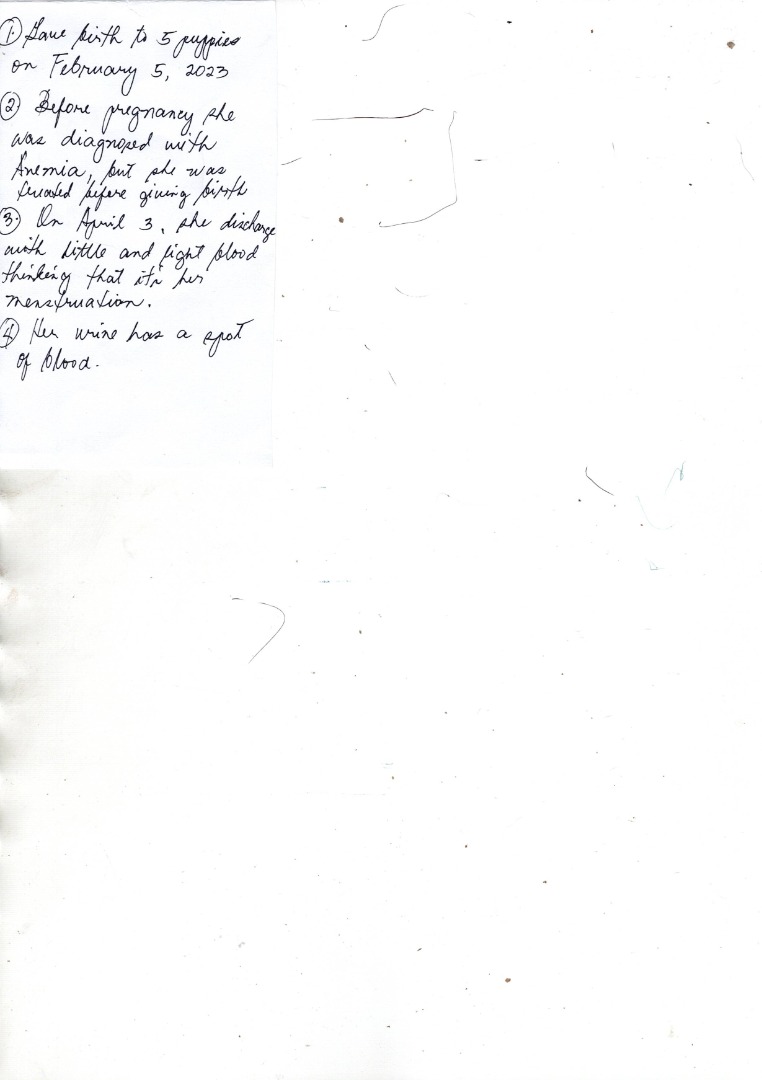 ① Gave birth to 5 puppies
on February 5, 2023
② Before pregnancy she
was diagnosed with
Anemia, but she was
treated before giving birth
③ On April 3, she discharge
with little and light blood
thinking that it's her
menstruation.
④ Her urine has a spot
of blood.